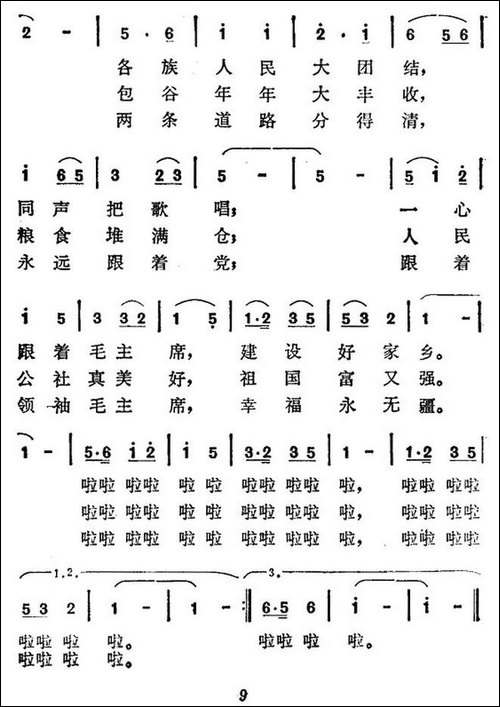 2̇ - | 5 · 6 | 1̇ 1̇ | 2̇ · 1̇ | 6 56 |
各族 人民 大团结，
包谷 年年 大丰收，
两条 道路 分得清，
1̇ 65 | 3 23 | 5 - | 5 - | 51̇ 2̇ |
同声 把歌 唱； 一心
粮食 堆满 仓； 人民
永远 跟着 党； 跟着
1̇ 5 | 3 32 | 1 5̣ | 1·2 35 | 53 2 | 1 - |
跟着 毛主 席， 建设 好家 乡。
公社 真美 好， 祖国 富又 强。
领袖 毛主 席， 幸福 永无 疆。
1 - | 5·6 1̇ 2̇ | 1̇ 5 | 3·2 35 | 1 - | 1·2 35 |
啦啦 啦啦 啦 啦 啦啦 啦啦 啦， 啦啦 啦啦
啦啦 啦啦 啦 啦 啦啦 啦啦 啦， 啦啦 啦啦
啦啦 啦啦 啦 啦 啦啦 啦啦 啦， 啦啦 啦啦
1.2. 3.
53 2 | 1 - | 1 - :‖ 6·5 6 | 1̇ - | 1̇ - ‖
啦啦 啦 啦。 啦啦 啦 啦。
啦啦 啦 啦。
9